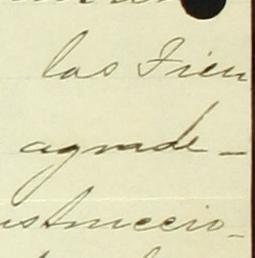 las Fieu
agrade-
nstruccio-